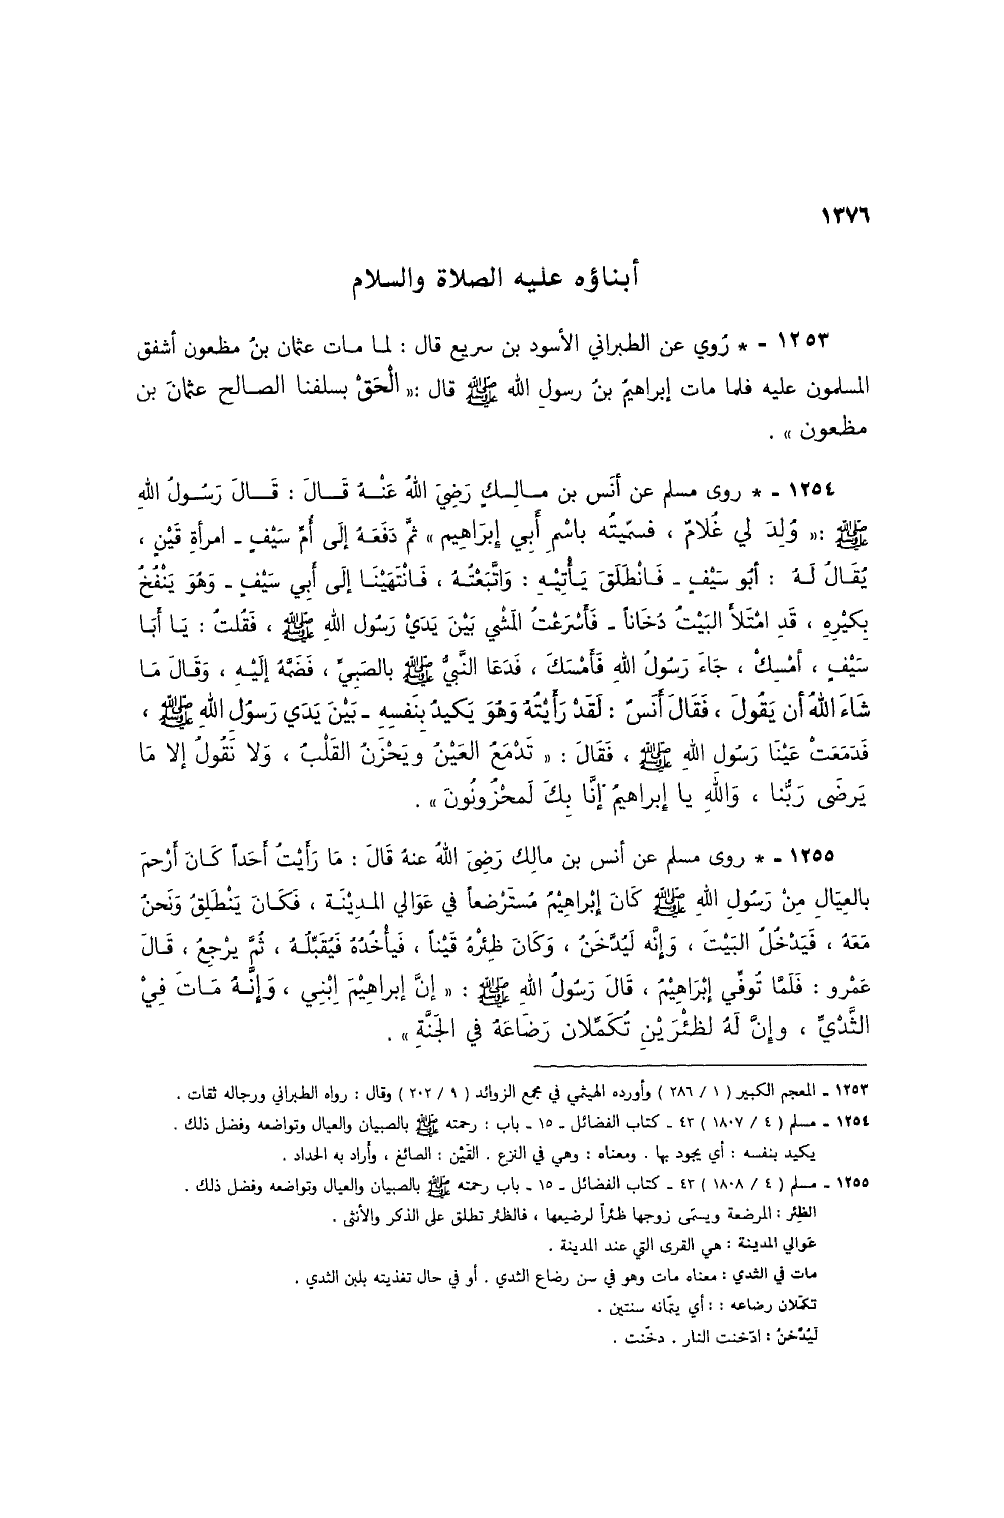 ١٣٧٦
أبناؤه عليه الصلاة والسلام
١٢٥٣ - * رُوي عن الطبراني الأسود بن سريع قال : لما مات عثمان بنُ مظعون أشفق
المسلمون عليه فلما مات إبراهيمُ بنُ رسولِ الله ﷺ قال :« الْحَقْ بسلفنا الصالح عثمانَ بن
مظعون » .
١٢٥٤ - * روى مسلم عن أنَس بن مالِكٍ رَضِيَ اللهُ عَنْهُ قَالَ : قَالَ رَسُولُ اللهِ
ﷺ :« وُلِدَ لي غُلامٌ ، فسمّيتُه باسْمِ أبي إبرَاهِيم » ثمَّ دَفَعَهُ إلَى أُمِّ سَيْفٍ - امرأةِ قَيْنٍ ،
يُقَالُ لَهُ : أبُو سَيْفٍ - فَانْطَلَقَ يَأتِيْهِ : وَاتَّبَعْتُهُ ، فَانْتَهَيْنَا إلَى أبي سَيْفٍ - وَهُوَ يَنْفُخُ
بِكيْرِهِ ، قَدِ امْتَلأَ البَيْتُ دُخَاناً - فَأَسْرَعْتُ المَشْي بَيْنَ يَدَيْ رَسُولِ اللهِ ﷺ ، فَقُلتُ : يَا أبَا
سَيْفٍ ، أمْسِكْ ، جَاءَ رَسُولُ اللهِ فَأَمْسَكَ ، فَدَعَا النَّبيُّ ﷺ بالصَبيِّ ، فَضَمَّهُ إلَيْهِ ، وَقَالَ مَا
شَاءَ اللهُ أن يَقُولَ ، فَقَالَ أَنَسٌ : لَقَدْ رَأَيْتُهُ وَهُوَ يَكيدُ بِنَفسِهِ - بَيْنَ يَدَي رَسوُلِ اللهِ ﷺ ،
فَدَمَعَتْ عَيْنَا رَسُولِ اللهِ ﷺ ، فَقَالَ : « تَدْمَعُ العَيْنُ ويَحْزَنُ القَلْبُ ، وَلا نَقُولُ إلا مَا
يَرضَى رَبُّنا ، وَاللهِ يا إبراهيمُ إنَّا بِكَ لَمحْزُونُونَ » .
١٢٥٥ - * روى مسلم عن أنس بن مالِك رَضِيَ اللهُ عنهُ قَالَ : مَا رَأَيْتُ أَحَداً كَانَ أَرْحمَ
بالعِيَالِ مِنْ رَسُولِ اللهِ ﷺ كَانَ إبْرَاهِيْمُ مُستَرْضعاً في عَوَالي المدِيْنَة ، فَكَانَ يَنْطَلِقُ وَنَحنُ
مَعَهُ ، فَيَدْخُلُ البَيْتَ ، وَإنَّه لَيُدَّخَنُ ، وَكَانَ ظِئْرُهُ قَيْناً ، فَيأْخُذُهُ فَيُقَبِّلُهُ ، ثُمَّ يرْجِعُ ، قَالَ
عَمْرو : فَلَمَّا تُوفِّي إبْرَاهِيْمُ ، قَالَ رَسُولُ اللهِ ﷺ : « إنَّ إبراهِيْمَ اِبْنِي ، وَإنَّهُ مَاتَ فِيْ
الثَّدْيِّ ، وإنَّ لَهُ لظئْرَيْنِ تُكَمِّلان رَضَاعَهُ في الجَنَّةِ » .
١٢٥٣ - المعجم الكبير ( ١ / ٢٨٦ ) وأورده الهيثمي في مجمع الزوائد ( ٩ / ٢٠٢ ) وقال : رواه الطبراني ورجاله ثقات .
١٢٥٤ - مسلم ( ٤ / ١٨٠٧ ) ٤٣ - كتاب الفضائل - ١٥ - باب : رحمته ﷺ بالصبيان والعيال وتواضعه وفضل ذلك .
يكيد بنفسه : أي يجود بها . ومعناه : وهي في النزع . القَيْن : الصائغ ، وأراد به الحداد .
١٢٥٥ - مسلم ( ٤ / ١٨٠٨ ) ٤٣ - كتاب الفضائل - ١٥ - باب رحمته ﷺ بالصبيان والعيال وتواضعه وفضل ذلك .
الظِئر : المرضعة ويسمّى زوجها ظئراً لرضيعها ، فالظئر تطلق على الذكر والأنثى .
عَوالي المدينة : هي القرى التي عند المدينة .
مات في الثدي : معناه مات وهو في سن رضاع الثدي . أو في حال تغذيته بلبن الثدي .
تكمّلان رضاعه : : أي يتمّانه سنتين .
لَيُدَّخنُ : ادّخنت النار . دخّنت .